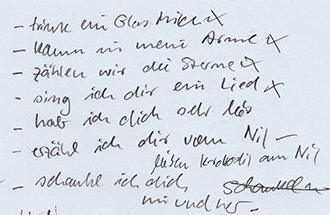 - trink ein Glas Milch x
- komm in meine Arme x
- zählen wir die Sterne x
- sing ich dir ein Lied x
- hab ich dich sehr lieb
- erzähl ich dir vom Nil -
leisen Krokodil am Nil
- schaukle ich dich schaukeln
hin und her -